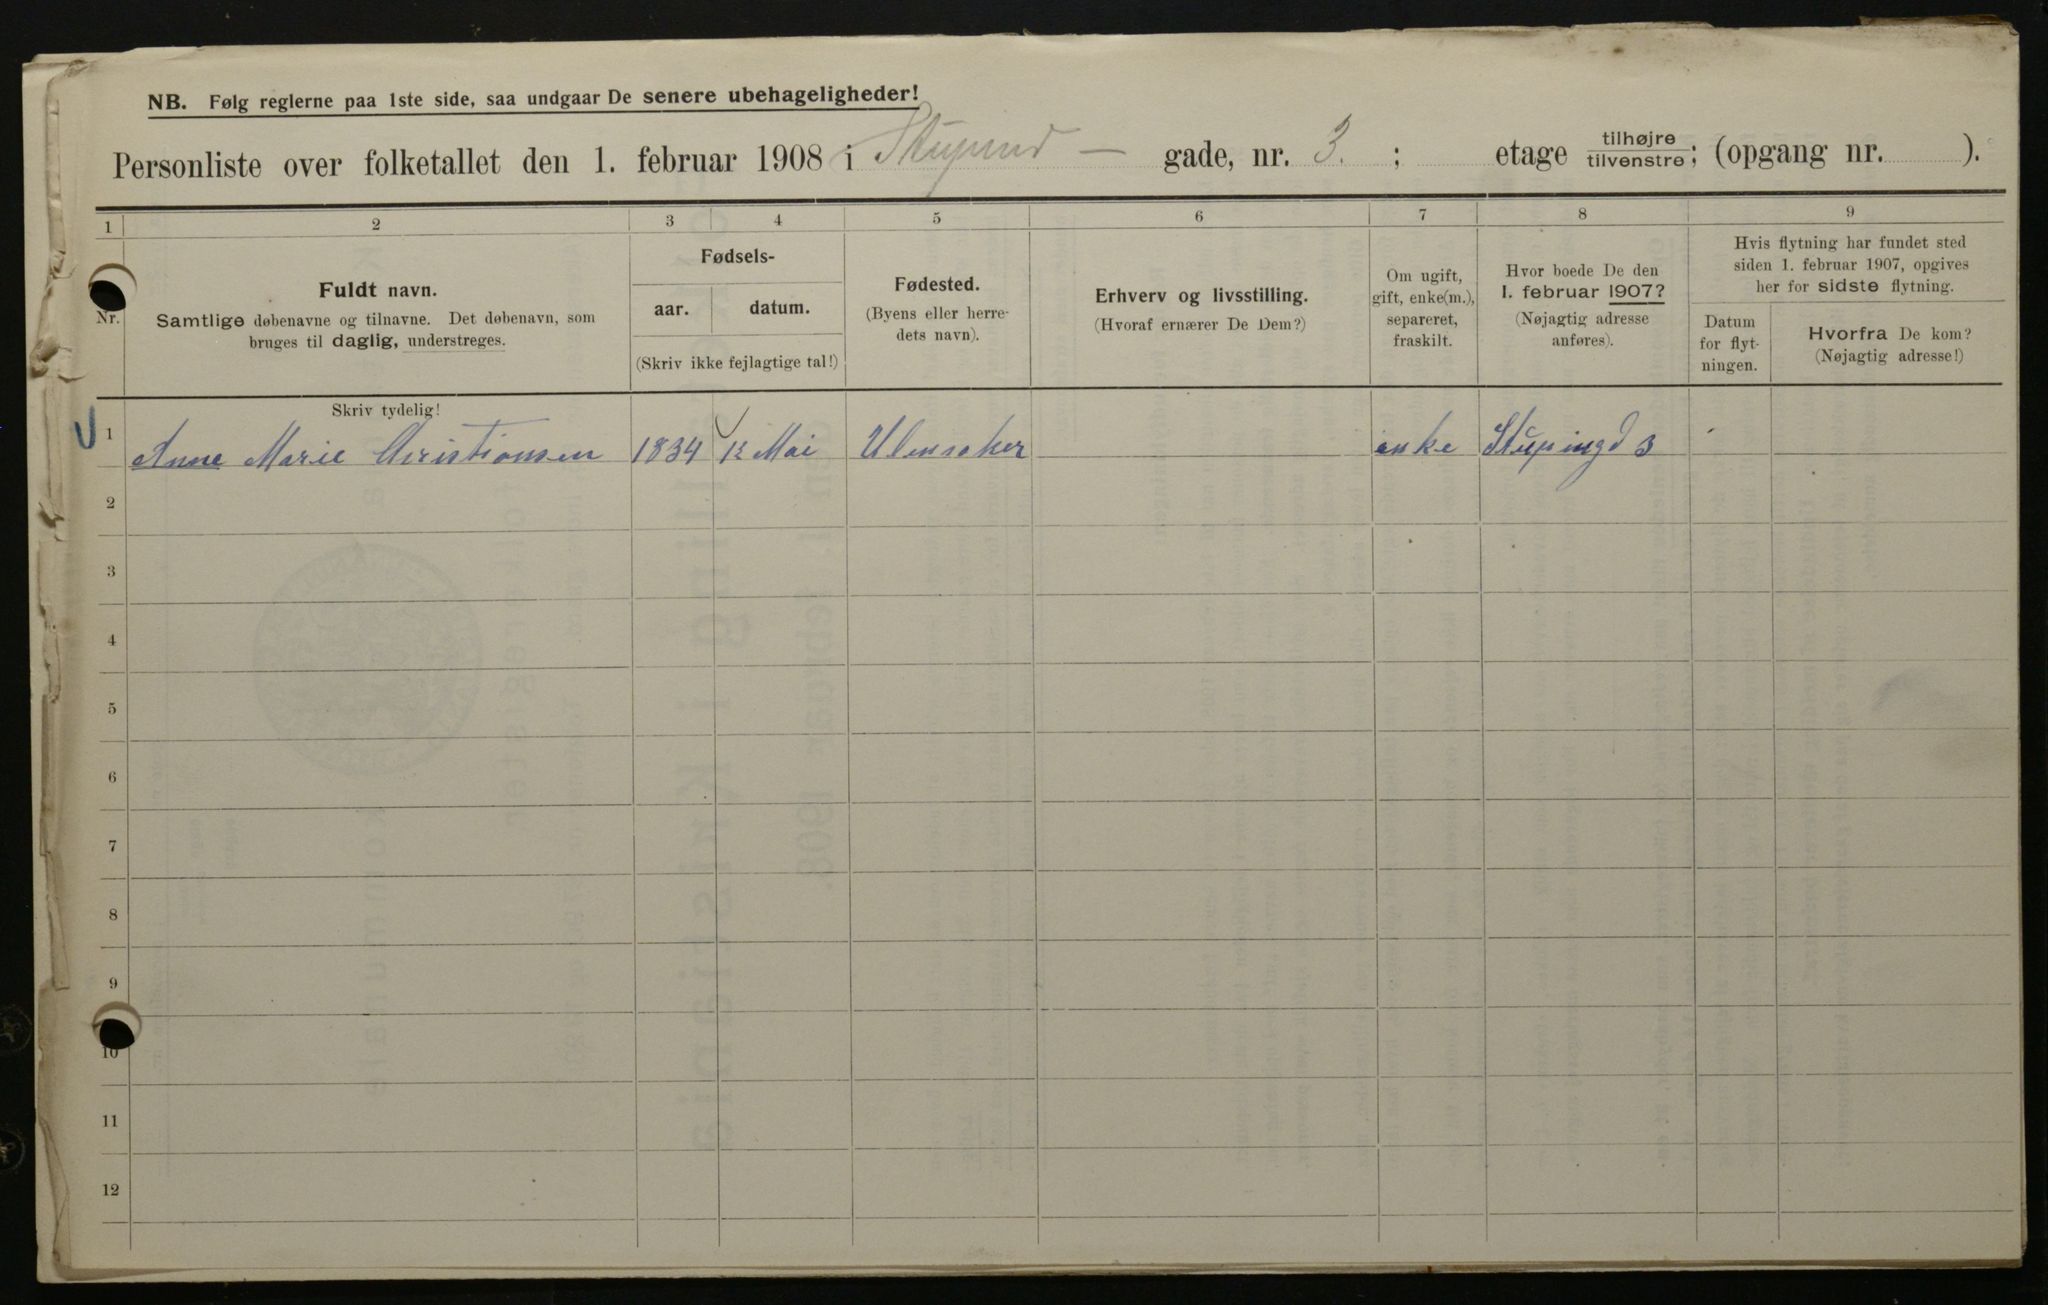 NB. Følg reglerne paa 1ste side, saa undgaar De senere ubehageligheder!
Personliste over folketallet den 1. februar 1908 i Stupind — gade, nr. 3. ; etage tilhøjre tilvenstre; (opgang nr. ).
1 2 3 4 5 6 7 8 9
Nr.
Fuldt navn.
Samtlige døbenavne og tilnavne. Det døbenavn, som
bruges til daglig, understreges.
Fødsels-
aar. datum.
(Skriv ikke fejlagtige tal!)
Fødested.
(Byens eller herre-
dets navn).
Erhverv og livsstilling.
(Hvoraf ernærer De Dem?)
Om ugift,
gift, enke(m.),
separeret,
fraskilt.
Hvor boede De den
1. februar 1907?
(Nøjagtig adresse
anføres).
Hvis flytning har fundet sted
siden 1. februar 1907, opgives
her for sidste flytning.
Datum
for flyt-
ningen.
Hvorfra De kom?
(Nøjagtig adresse!)
Skriv tydelig!
1 Anne Marie Christiansen 1834 12 Mai Ulensaker enke Stupingd 3
2
3
4
5
6
7
8
9
10
11
12